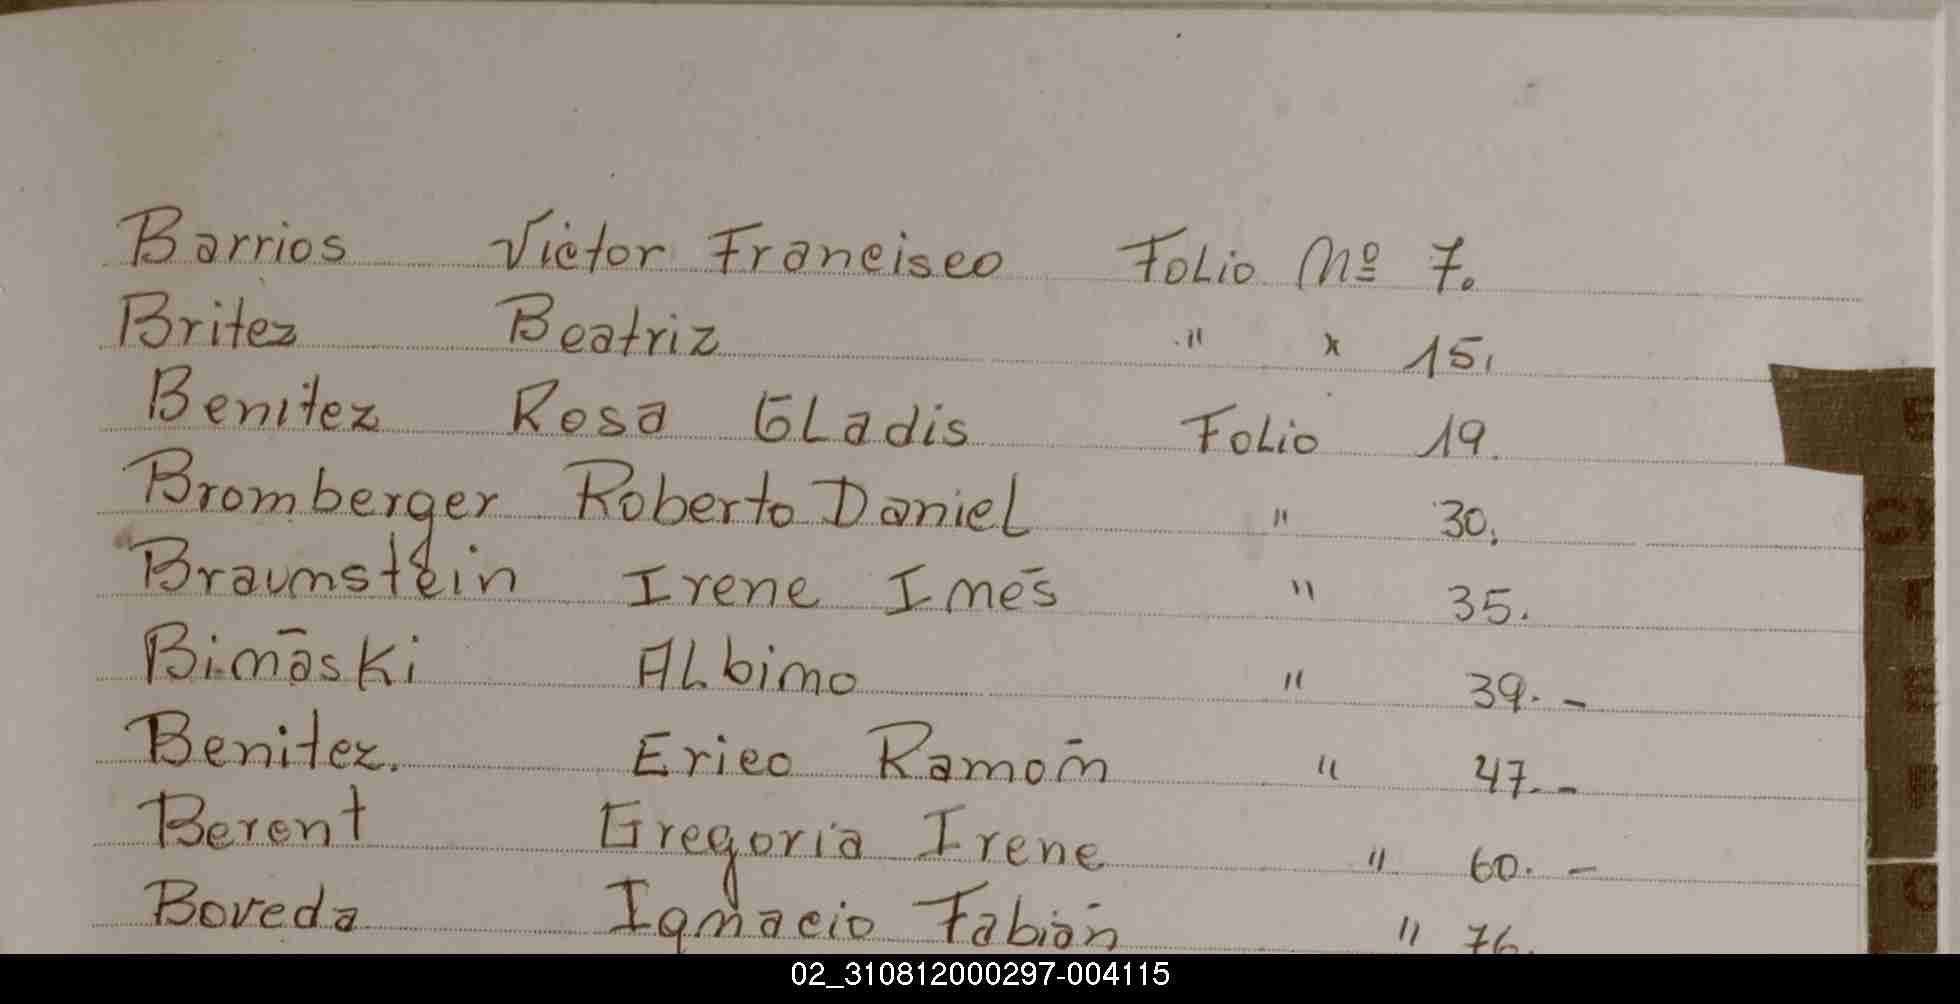 Barrios Victor Francisco Folio Nº 7.
Britez Beatriz " x 15.
Benitez Rosa Gladis Folio 19.
Bromberger Roberto Daniel " 30.
Braumstein Irene Imés " 35.
Bimáski Albimo " 39.-
Benitez. Erico Ramóm " 47.-
Berent Gregoria Irene " 60.-
Boveda Igmacio Fabián " 76.
02_310812000297-004115